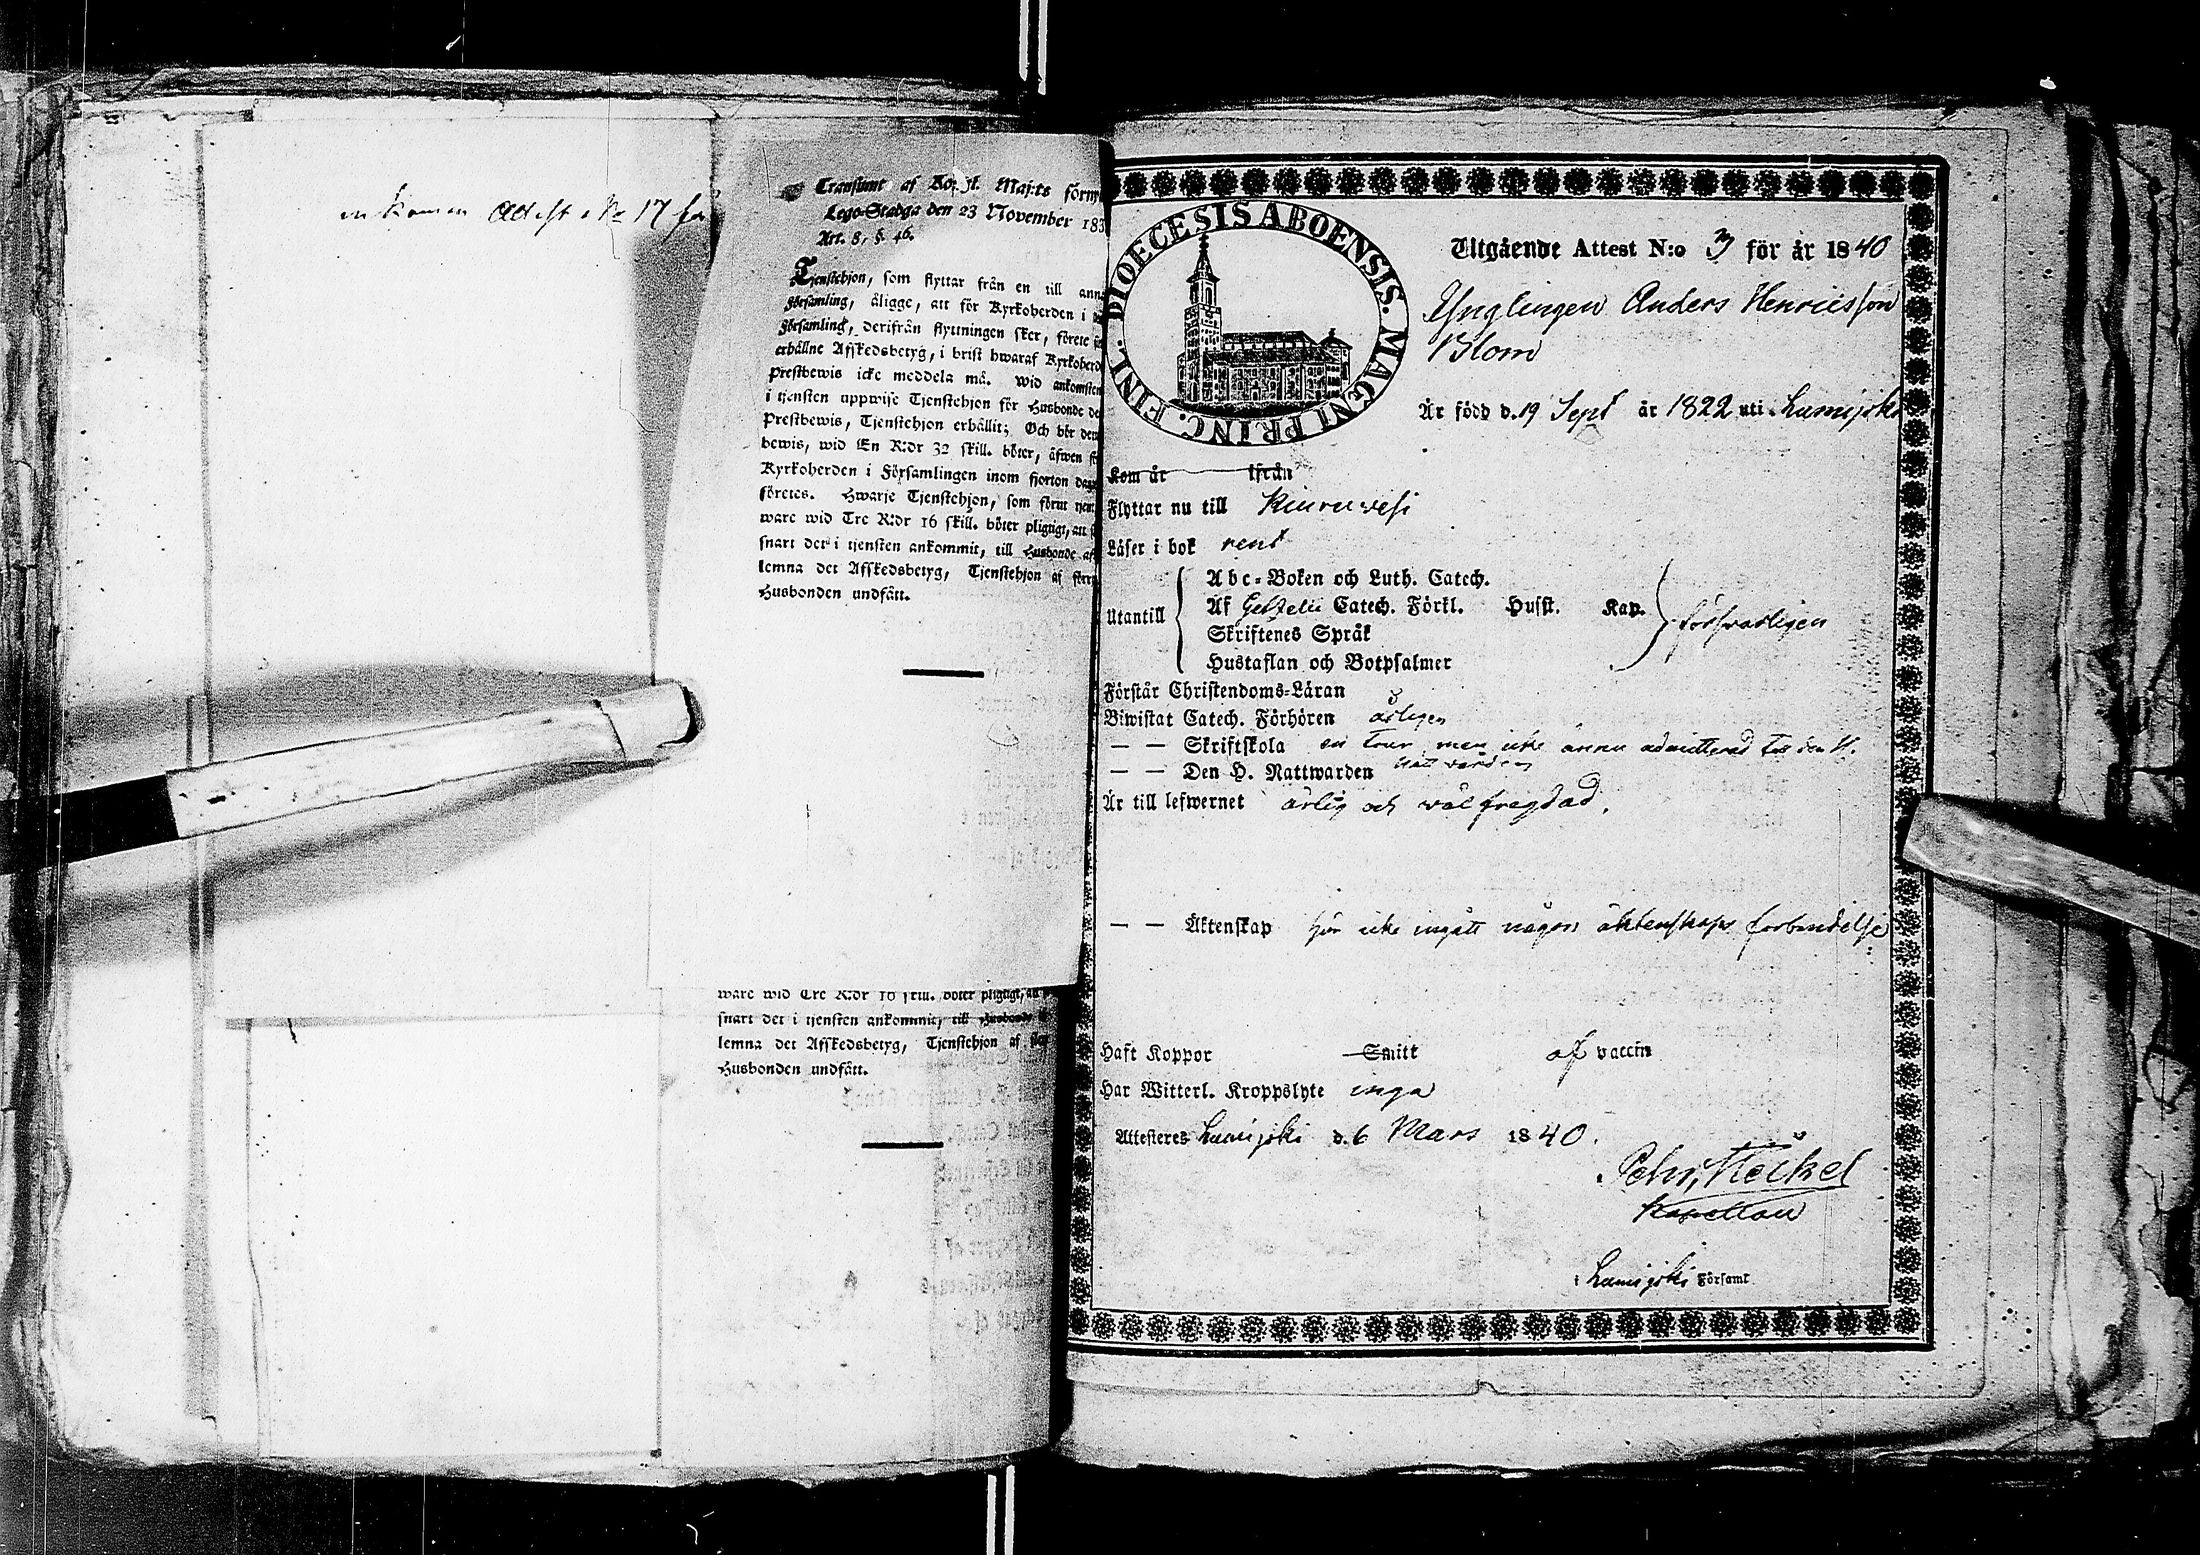 inkommen Attest No 17 för
Transumt af Kongl. Maj:ts förny
Lego-Stadga den 23 November 183
Art. 8, §. 46.
Tjenstehjon, som flyttar från en till ann
Församling, åligge, att för Kyrkoherden i
Församling, derifrån flyttningen sker, förete
erhållne Afskedsbetyg, i brist hwaraf Kyrkoherd
Prestbewis icke meddela må. Wid ankomsten
i tjensten uppwise Tjenstehjon för Husbonde de
Prestbewis, Tjenstehjon erhållit; Och bör det
bewis, wid En R:dr 32 skill. böter, äfwen f
Kyrkoherden i Församlingen inom fjorton dag
företes. Hwarje Tjenstehjon, som förut tjen
ware wid Tre R:dr 16 skill. böter pligtigt, att
snart det i tjensten ankommit, till Husbonde af
lemna det Afskedsbetyg, Tjenstehjon af förr
Husbonden undfått.
ware wid Tre R:dr 16 skill. böter pligtigt, att
snart det i tjensten ankommit, till Husbonde
lemna det Afskedsbetyg, Tjenstehjon af för
Husbonden undfått.
DIOECESIS ABOENSIS. MAGNI PRINC. FINL.
Utgående Attest N:o 3 för år 1840
Ynglingen Anders Henricsson
Blom
Är född d. 19 Sept år 1822 uti Lumijoki
Kom år ifrån
Flyttar nu till Kiuruvesi
Läser i bok rent
Utantill
Abc-Boken och Luth. Catech.
Af Gezelii Catech. Förkl. Husst. Kap.
Skriftenes Språk
Hustaflan och Botpsalmer
försvarligen
Förstår Christendoms-Läran
Biwistat Catech. Förhören årligen
— — Skriftskola en tour, men icke ännu admitterad till den H.
— — Den H. Nattwarden Nattvarden
Är till lefwernet ärlig och väl frejdad.
— — Äktenskap har icke ingått någon äktenskaps förbindelse
Haft Koppor Smitt af vaccin
Har Witterl. Kroppslyte inga
Attesteres Lumijoki d. 6 Mars 1840.
Pehr Heickel
Kapellan
i Lumijoki Församl